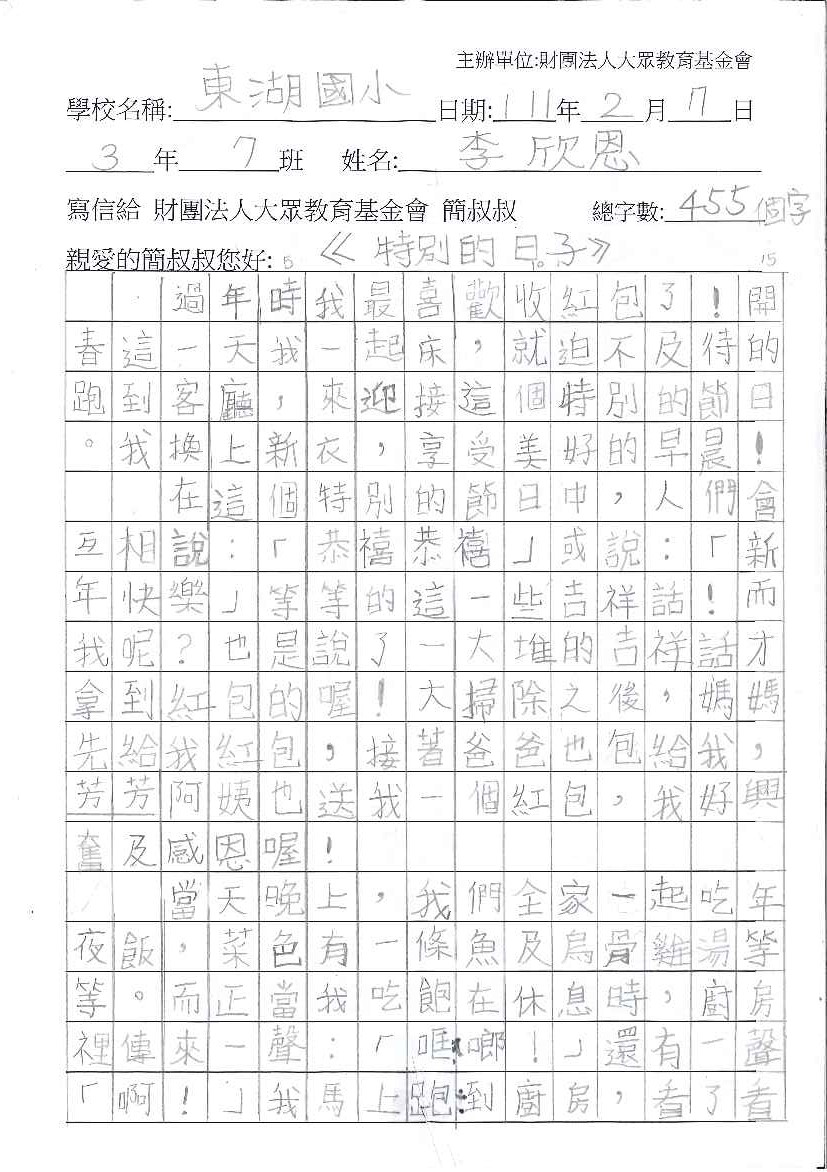 主辦單位:財團法人大眾教育基金會
學校名稱:東湖國小 日期:111年2月7日
3年7班 姓名:李欣恩
寫信給 財團法人大眾教育基金會 簡叔叔 總字數:455個字
親愛的簡叔叔您好: 5 《特別的日子》 10 15
過年時我最喜歡收紅包了!開
春這一天我一起床,就迫不及待的
跑到客廳,來迎接這個特別的節日
。我換上新衣,享受美好的早晨!
在這個特別的節日中,人們會
互相說:「恭禧恭禧」或說:「新
年快樂」等等的這一些吉祥話!而
我呢?也是說了一大堆的吉祥話才
拿到紅包的喔!大掃除之後,媽媽
先給我紅包,接著爸爸也包給我,
芳芳阿姨也送我一個紅包,我好興
奮及感恩喔!
當天晚上,我們全家一起吃年
夜飯,菜色有一條魚及烏骨雞湯等
等。而正當我吃飽在休息時,廚房
裡傳來一聲:「哐啷!」還有一聲
「啊!」我馬上跑到廚房,看了看